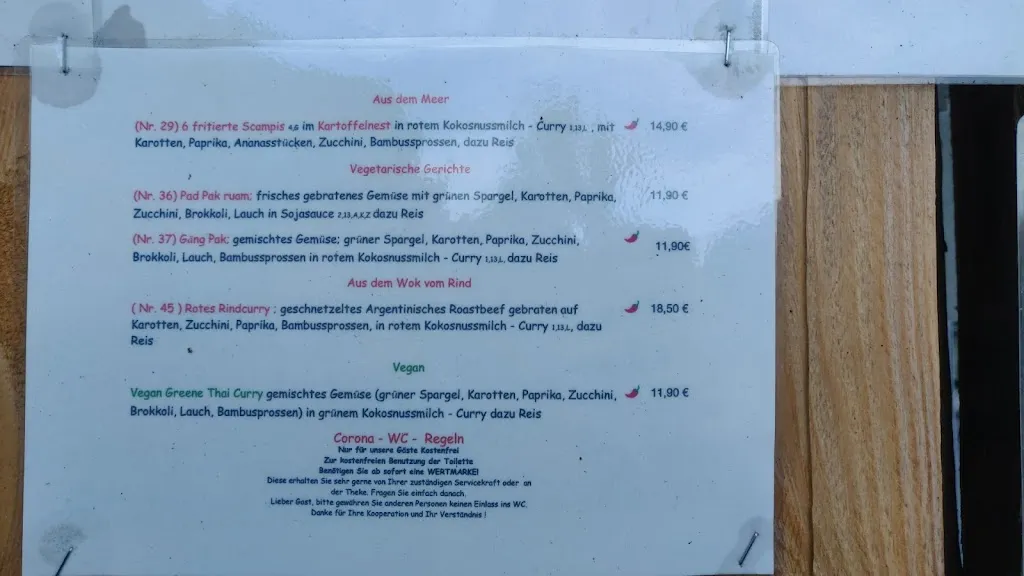 Aus dem Meer
(Nr. 29) 6 fritierte Scampis 4,6 im Kartoffelnest in rotem Kokosnussmilch - Curry 1,13,L , mit 14,90 €
Karotten, Paprika, Ananasstücken, Zucchini, Bambussprossen, dazu Reis
Vegetarische Gerichte
(Nr. 36) Pad Pak ruam: frisches gebratenes Gemüse mit grünen Spargel, Karotten, Paprika, 11,90 €
Zucchini, Brokkoli, Lauch in Sojasauce 2,13,A,K,Z dazu Reis
(Nr. 37) Gäng Pak: gemischtes Gemüse; grüner Spargel, Karotten, Paprika, Zucchini, 11,90€
Brokkoli, Lauch, Bambussprossen in rotem Kokosnussmilch - Curry 1,13,L, dazu Reis
Aus dem Wok vom Rind
( Nr. 45 ) Rotes Rindcurry : geschnetzeltes Argentinisches Roastbeef gebraten auf 18,50 €
Karotten, Zucchini, Paprika, Bambussprossen, in rotem Kokosnussmilch - Curry 1,13,L, dazu
Reis
Vegan
Vegan Greene Thai Curry gemischtes Gemüse (grüner Spargel, Karotten, Paprika, Zucchini, 11,90 €
Brokkoli, Lauch, Bambusprossen) in grünem Kokosnussmilch - Curry dazu Reis
Corona - WC - Regeln
Nur für unsere Gäste Kostenfrei
Zur kostenfreien Benutzung der Toilette
Benötigen Sie ab sofort eine WERTMARKE!
Diese erhalten Sie sehr gerne von Ihrer zuständigen Servicekraft oder an
der Theke. Fragen Sie einfach danach.
Lieber Gast, bitte gewähren Sie anderen Personen keinen Einlass ins WC.
Danke für Ihre Kooperation und Ihr Verständnis !